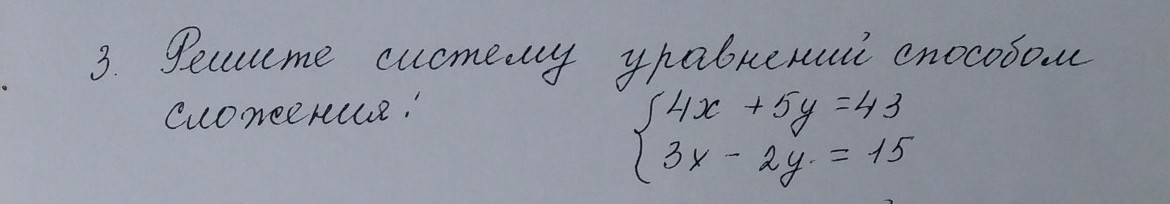 3. Решите систему уравнений способом
сложения: {4x + 5y = 43
{3x - 2y = 15